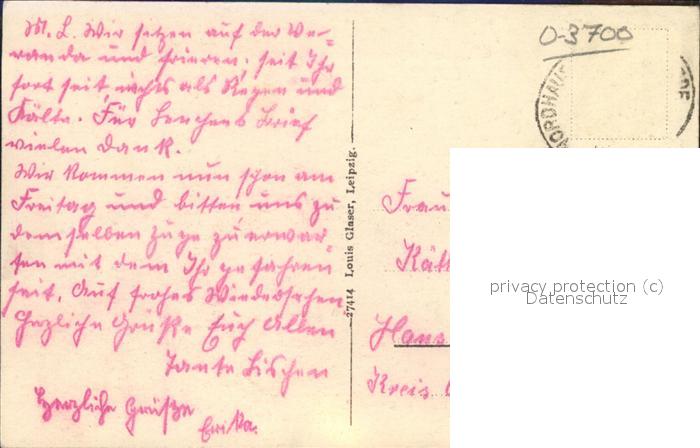 M. L. Wir sitzen auf der Ve-
randa und frieren; seit Ihr
fort seit, nichts als Regen und
Kälte. Für Lenchens Brief
vielen Dank.
Wir kommen nun schon am
Freitag und bitten uns zu
demselben Zuge zu erwar-
ten mit dem Ihr gefahren
seit. Auf frohes Wiedersehen
Herzliche Grüße Euch Allen
Tante Lischen
Herzliche Grüsze
Erika.
27414 Louis Glaser, Leipzig.
0-3700
NORDHAUS
Frau
Käth
Hans
Kreis
privacy protection (c)
Datenschutz